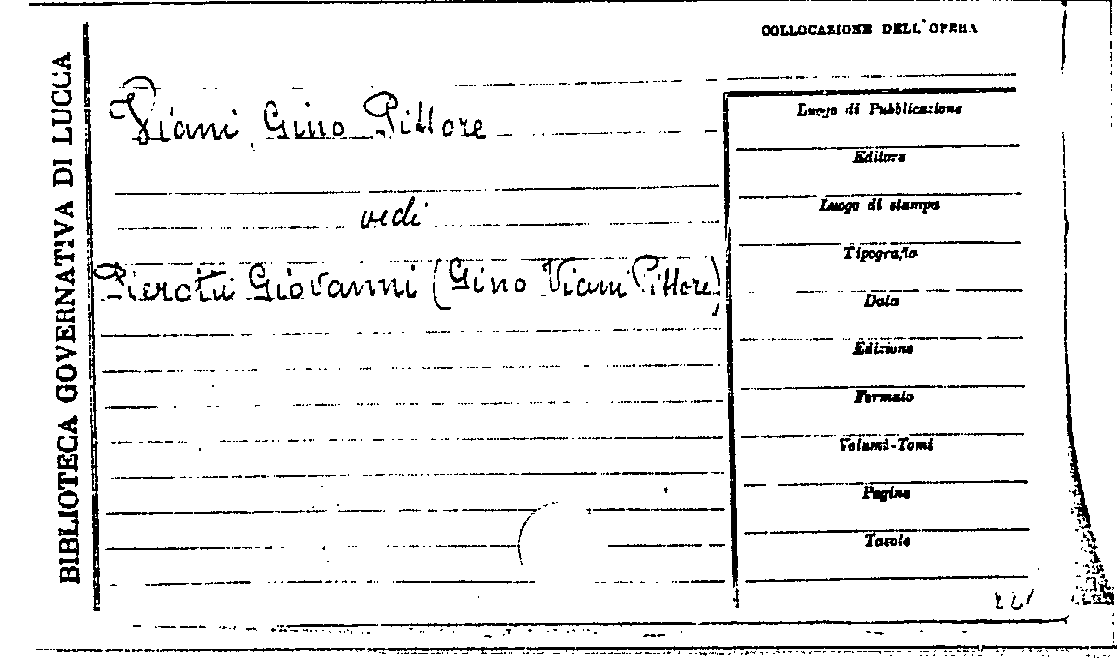 COLLOCAZIONE DELL'OPERA
BIBLIOTECA GOVERNATIVA DI LUCCA
Viani Gino Pittore
vedi
Pierotti Giovanni (Gino Viani Pittore)
Luogo di Pubblicazione
Editore
Luogo di stampa
Tipografia
Data
Edizione
Formato
Volumi-Tomi
Pagine
Tavole